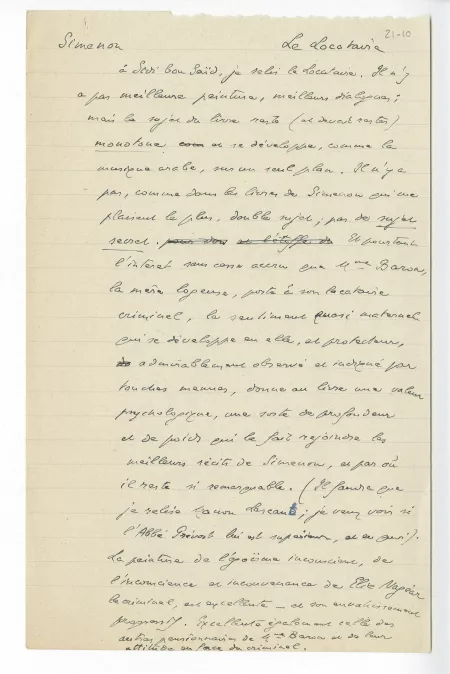 21-10
Simenon Le Locataire
à Sidi bou Saïd, je relis le Locataire. Il n'y
a pas meilleure peinture, meilleurs dialogues ;
mais le sujet du livre reste (et devait rester)
monotone et se développe, comme la
musique arabe, sur un seul plan. Il n'y a
pas, comme dans les livres de Simenon qui me
plaisent le plus, double sujet ; pas de sujet
secret. Et pourtant
l'intérêt sans cesse accru que Mme Baron,
la mère logeuse, porte à son locataire
criminel, le sentiment quasi maternel
qui se développe en elle, et protecteur,
admirablement observé et indiqué par
touches menues, donne au livre une valeur
psychologique, une sorte de profondeur
et de poids qui le fait rejoindre les
meilleurs récits de Simenon, et par où
il reste si remarquable. (Il faudra que
je relise Manon Lescaut ; je veux voir si
l'Abbé Prévost lui est supérieur, et en quoi).
La peinture de l'égoïsme inconscient, de
l'inconscience et inconvenance de Elie Nagéar
le criminel, est excellente — et son envahissement
progressif. Excellente également celle des
autres pensionnaires de Mme Baron et de leur
attitude en face du criminel.